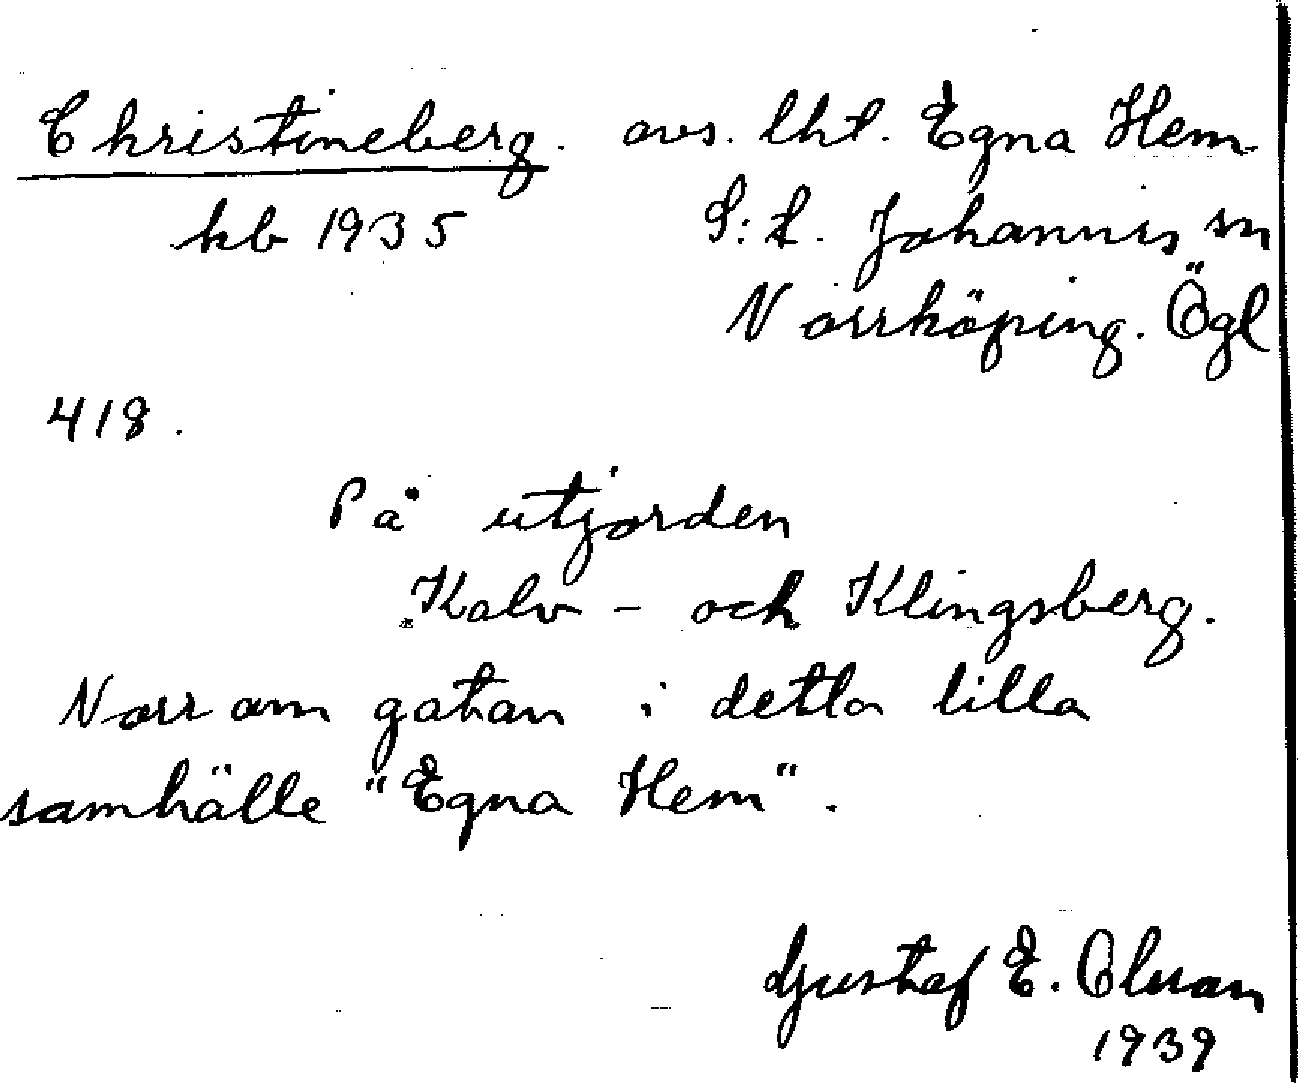 Christineberg. avs. lht. Egna Hem
kb 1935 S:t. Johannis sn
Norrköping. Ögl
418.
På utjorden
Kalv- och Klingsberg.
Norr om gatan i detta lilla
samhälle "Egna Hem".
Gustaf E. Olsson
1939